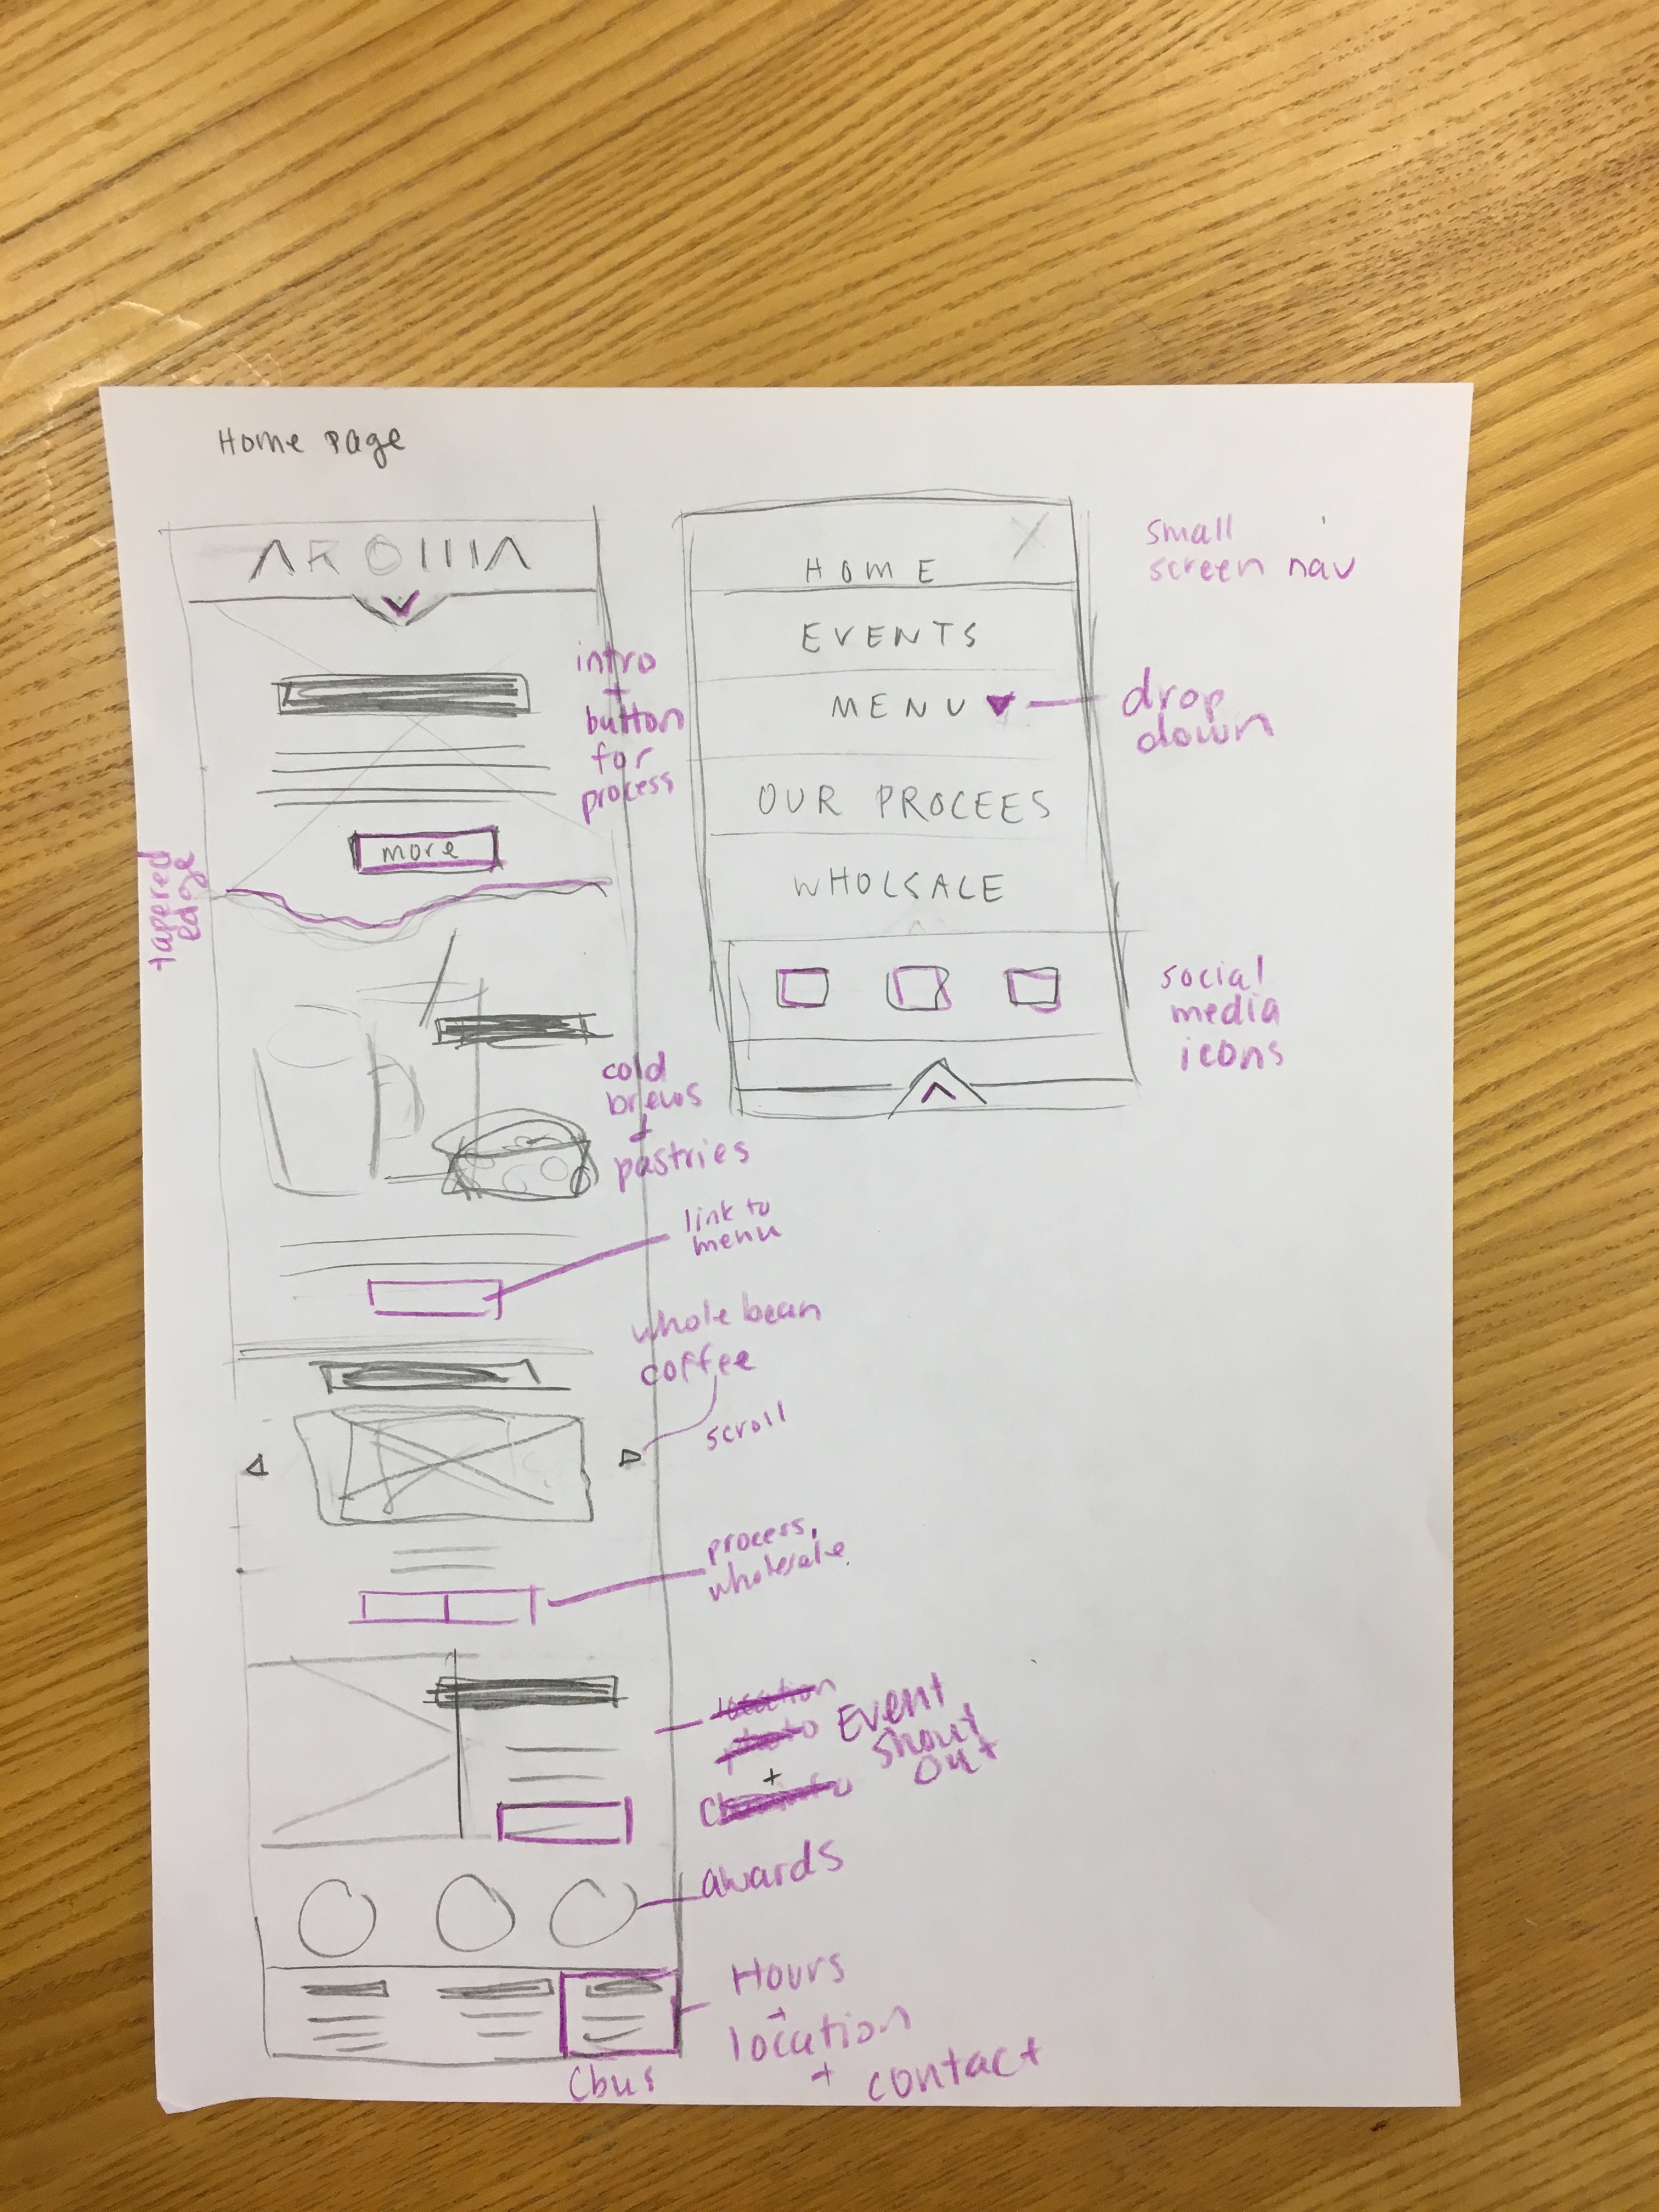 Home page
AROMA
intro
+
button
for
process
more
tapered
edge
cold
brews
+
pastries
link to
menu
whole bean
coffee
scroll
process,
wholesale
location
photo
+
Event
shout
out
awards
Hours
+
location
+ contact
Cbus
X
HOME
EVENTS
MENU
OUR PROCEES
WHOLSALE
small
screen nav
drop
down
social
media
icons